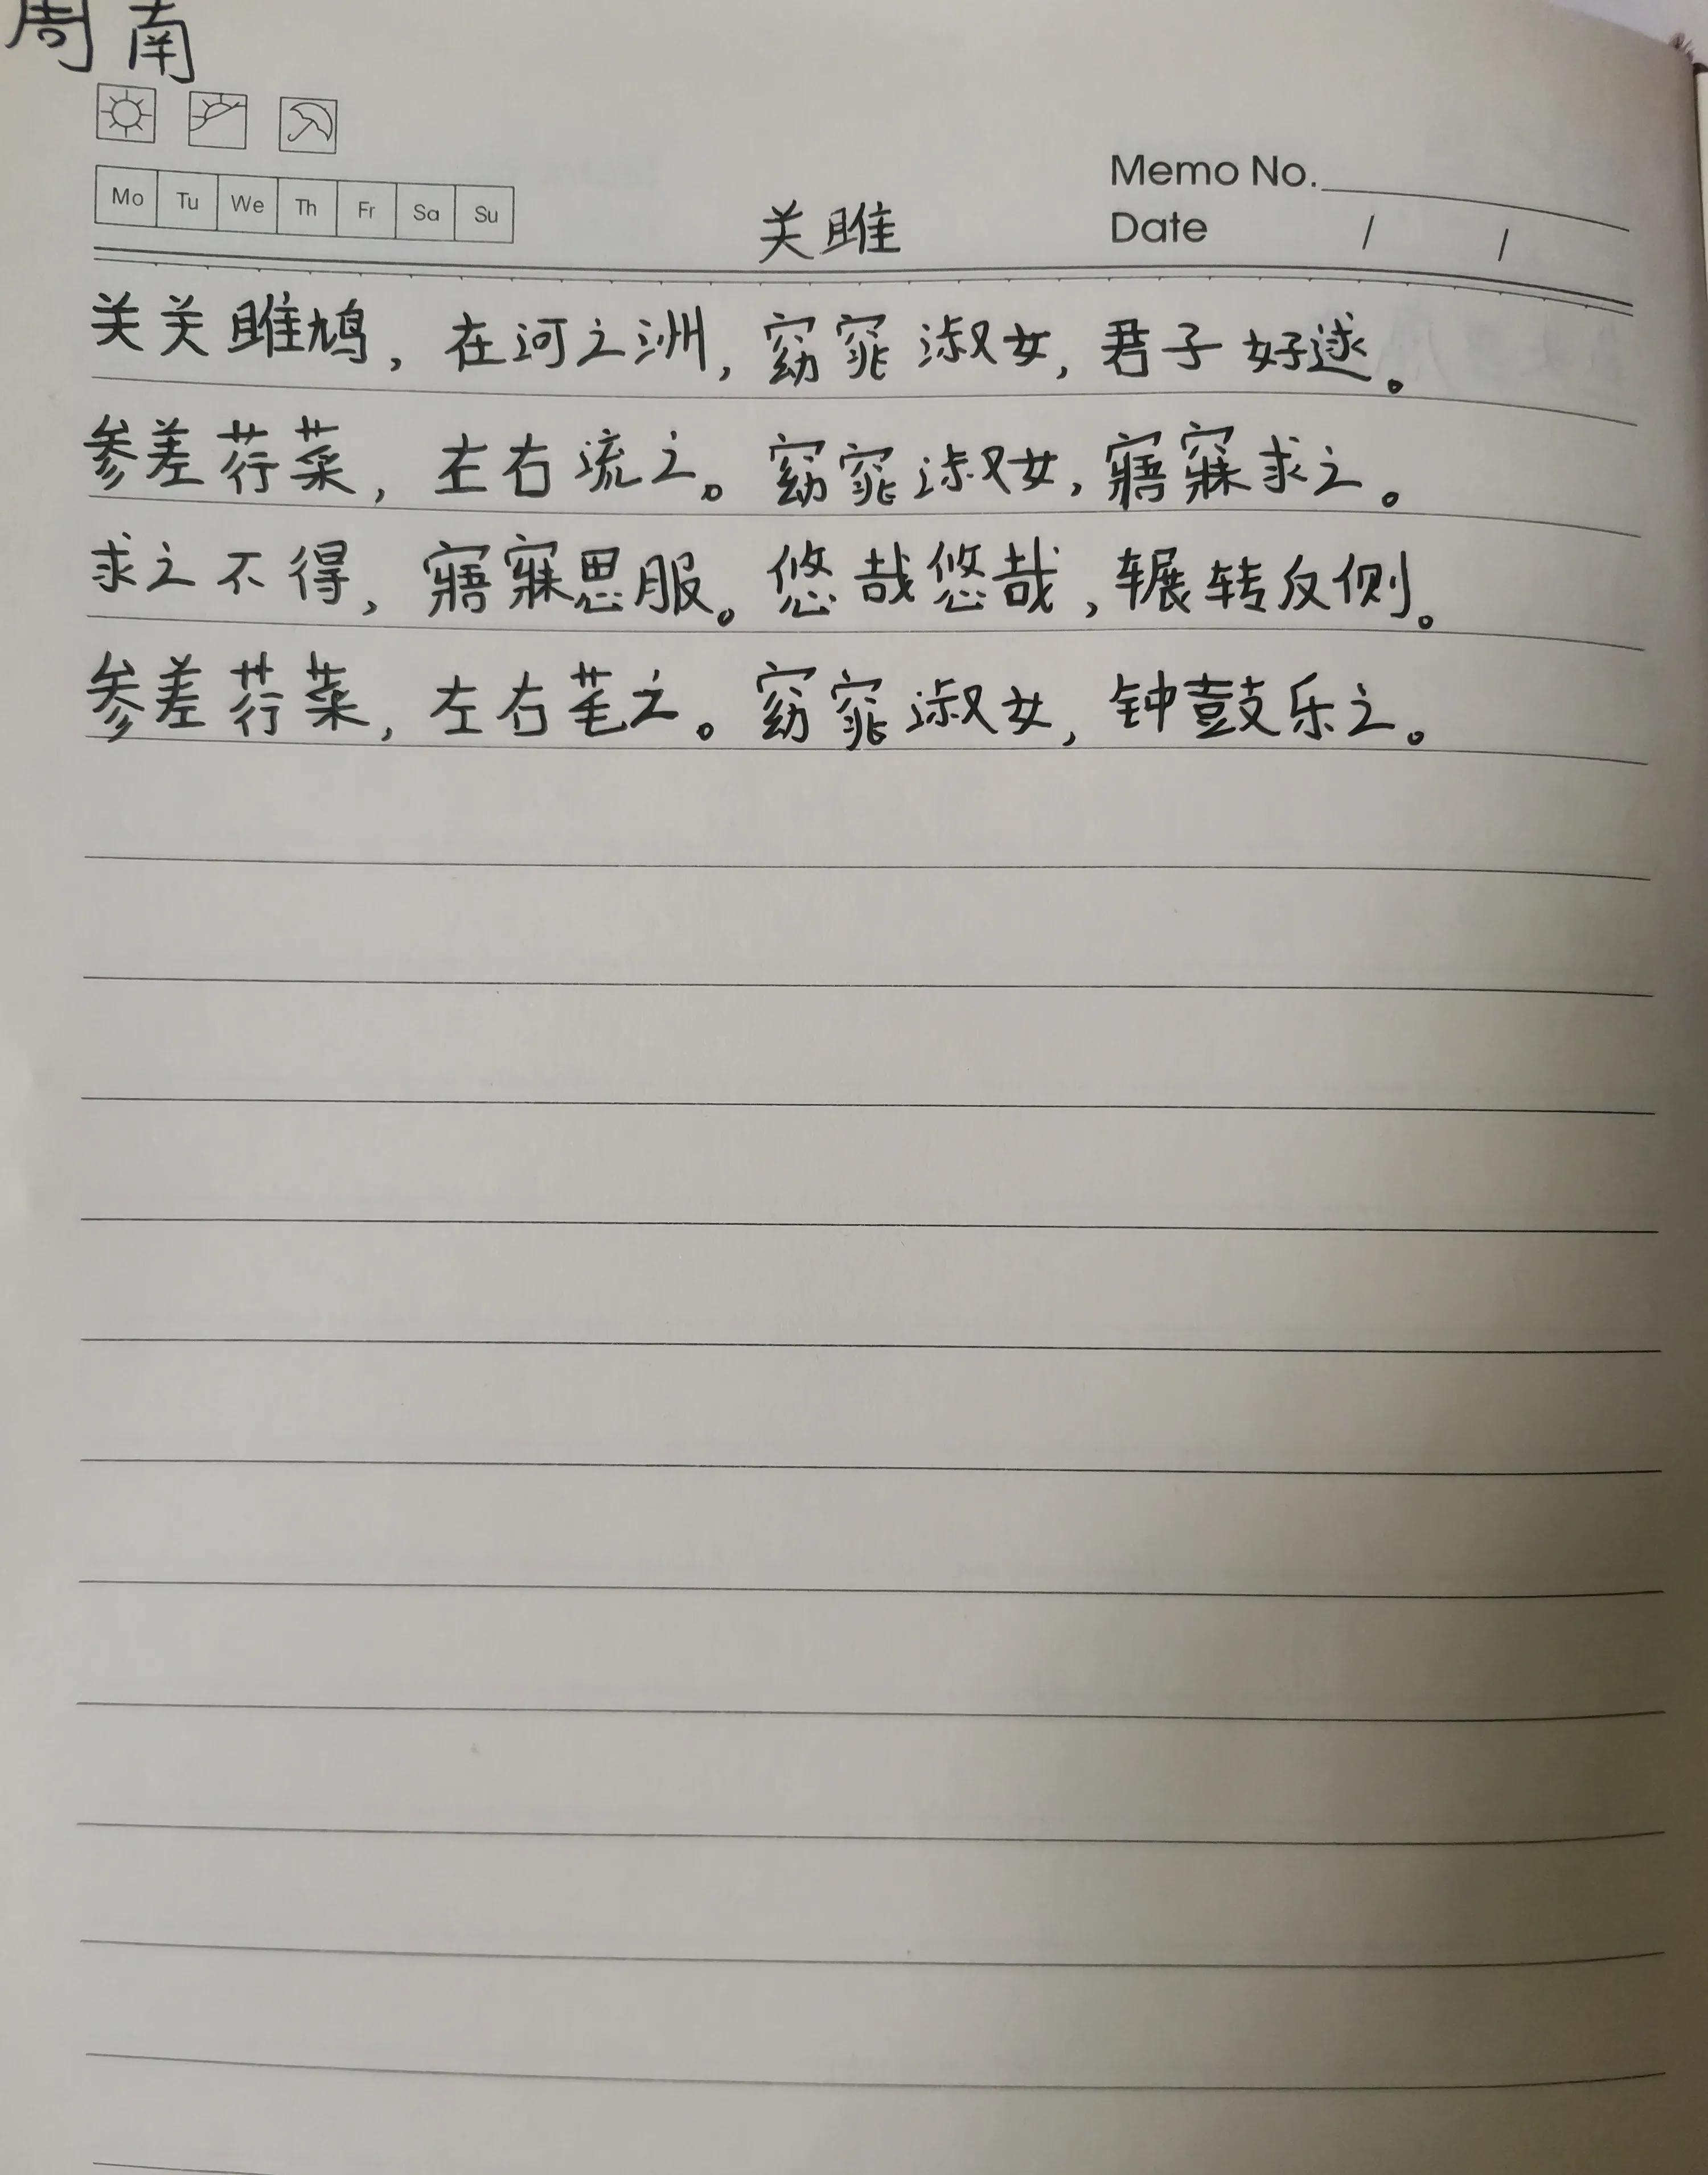 周南
Mo Tu We Th Fr Sa Su
Memo No.
Date / /
关雎
关关雎鸠，在河之洲，窈窕淑女，君子好逑。
参差荇菜，左右流之。窈窕淑女，寤寐求之。
求之不得，寤寐思服。悠哉悠哉，辗转反侧。
参差荇菜，左右芼之。窈窕淑女，钟鼓乐之。